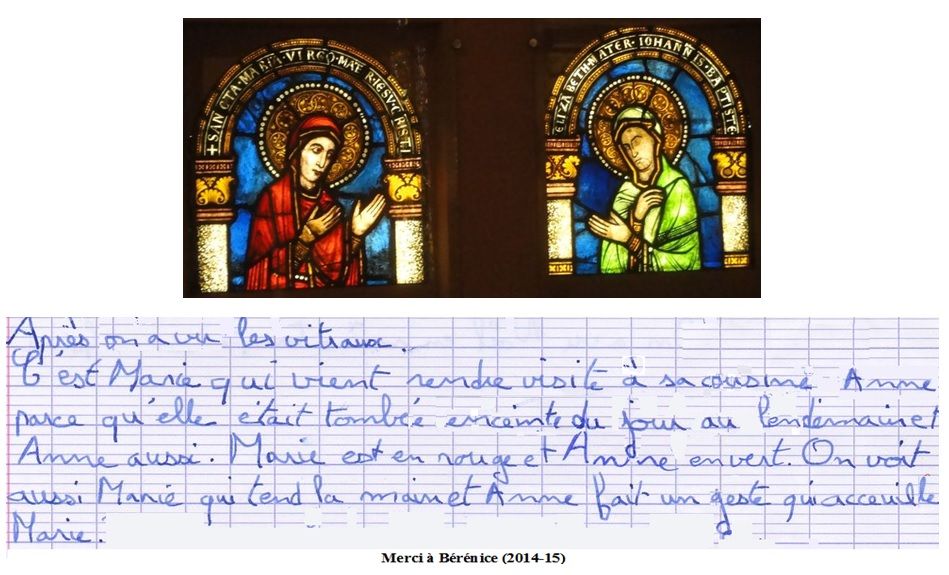 +SANCTA·MARIA·VIRGO·MATER·IESV·CRISTI
ELIZABETH·MATER·IOHANNIS·BAPTISTE
Après on a vu les vitraux.
C'est Marie qui vient rendre visite à sa cousine Anne
parce qu'elle était tombée enceinte du jour au lendemain et
Anne aussi. Marie est en rouge et Anne en vert. On voit
aussi Marie qui tend la main et Anne fait un geste qui acceuille
Marie.
Merci à Bérénice (2014-15)